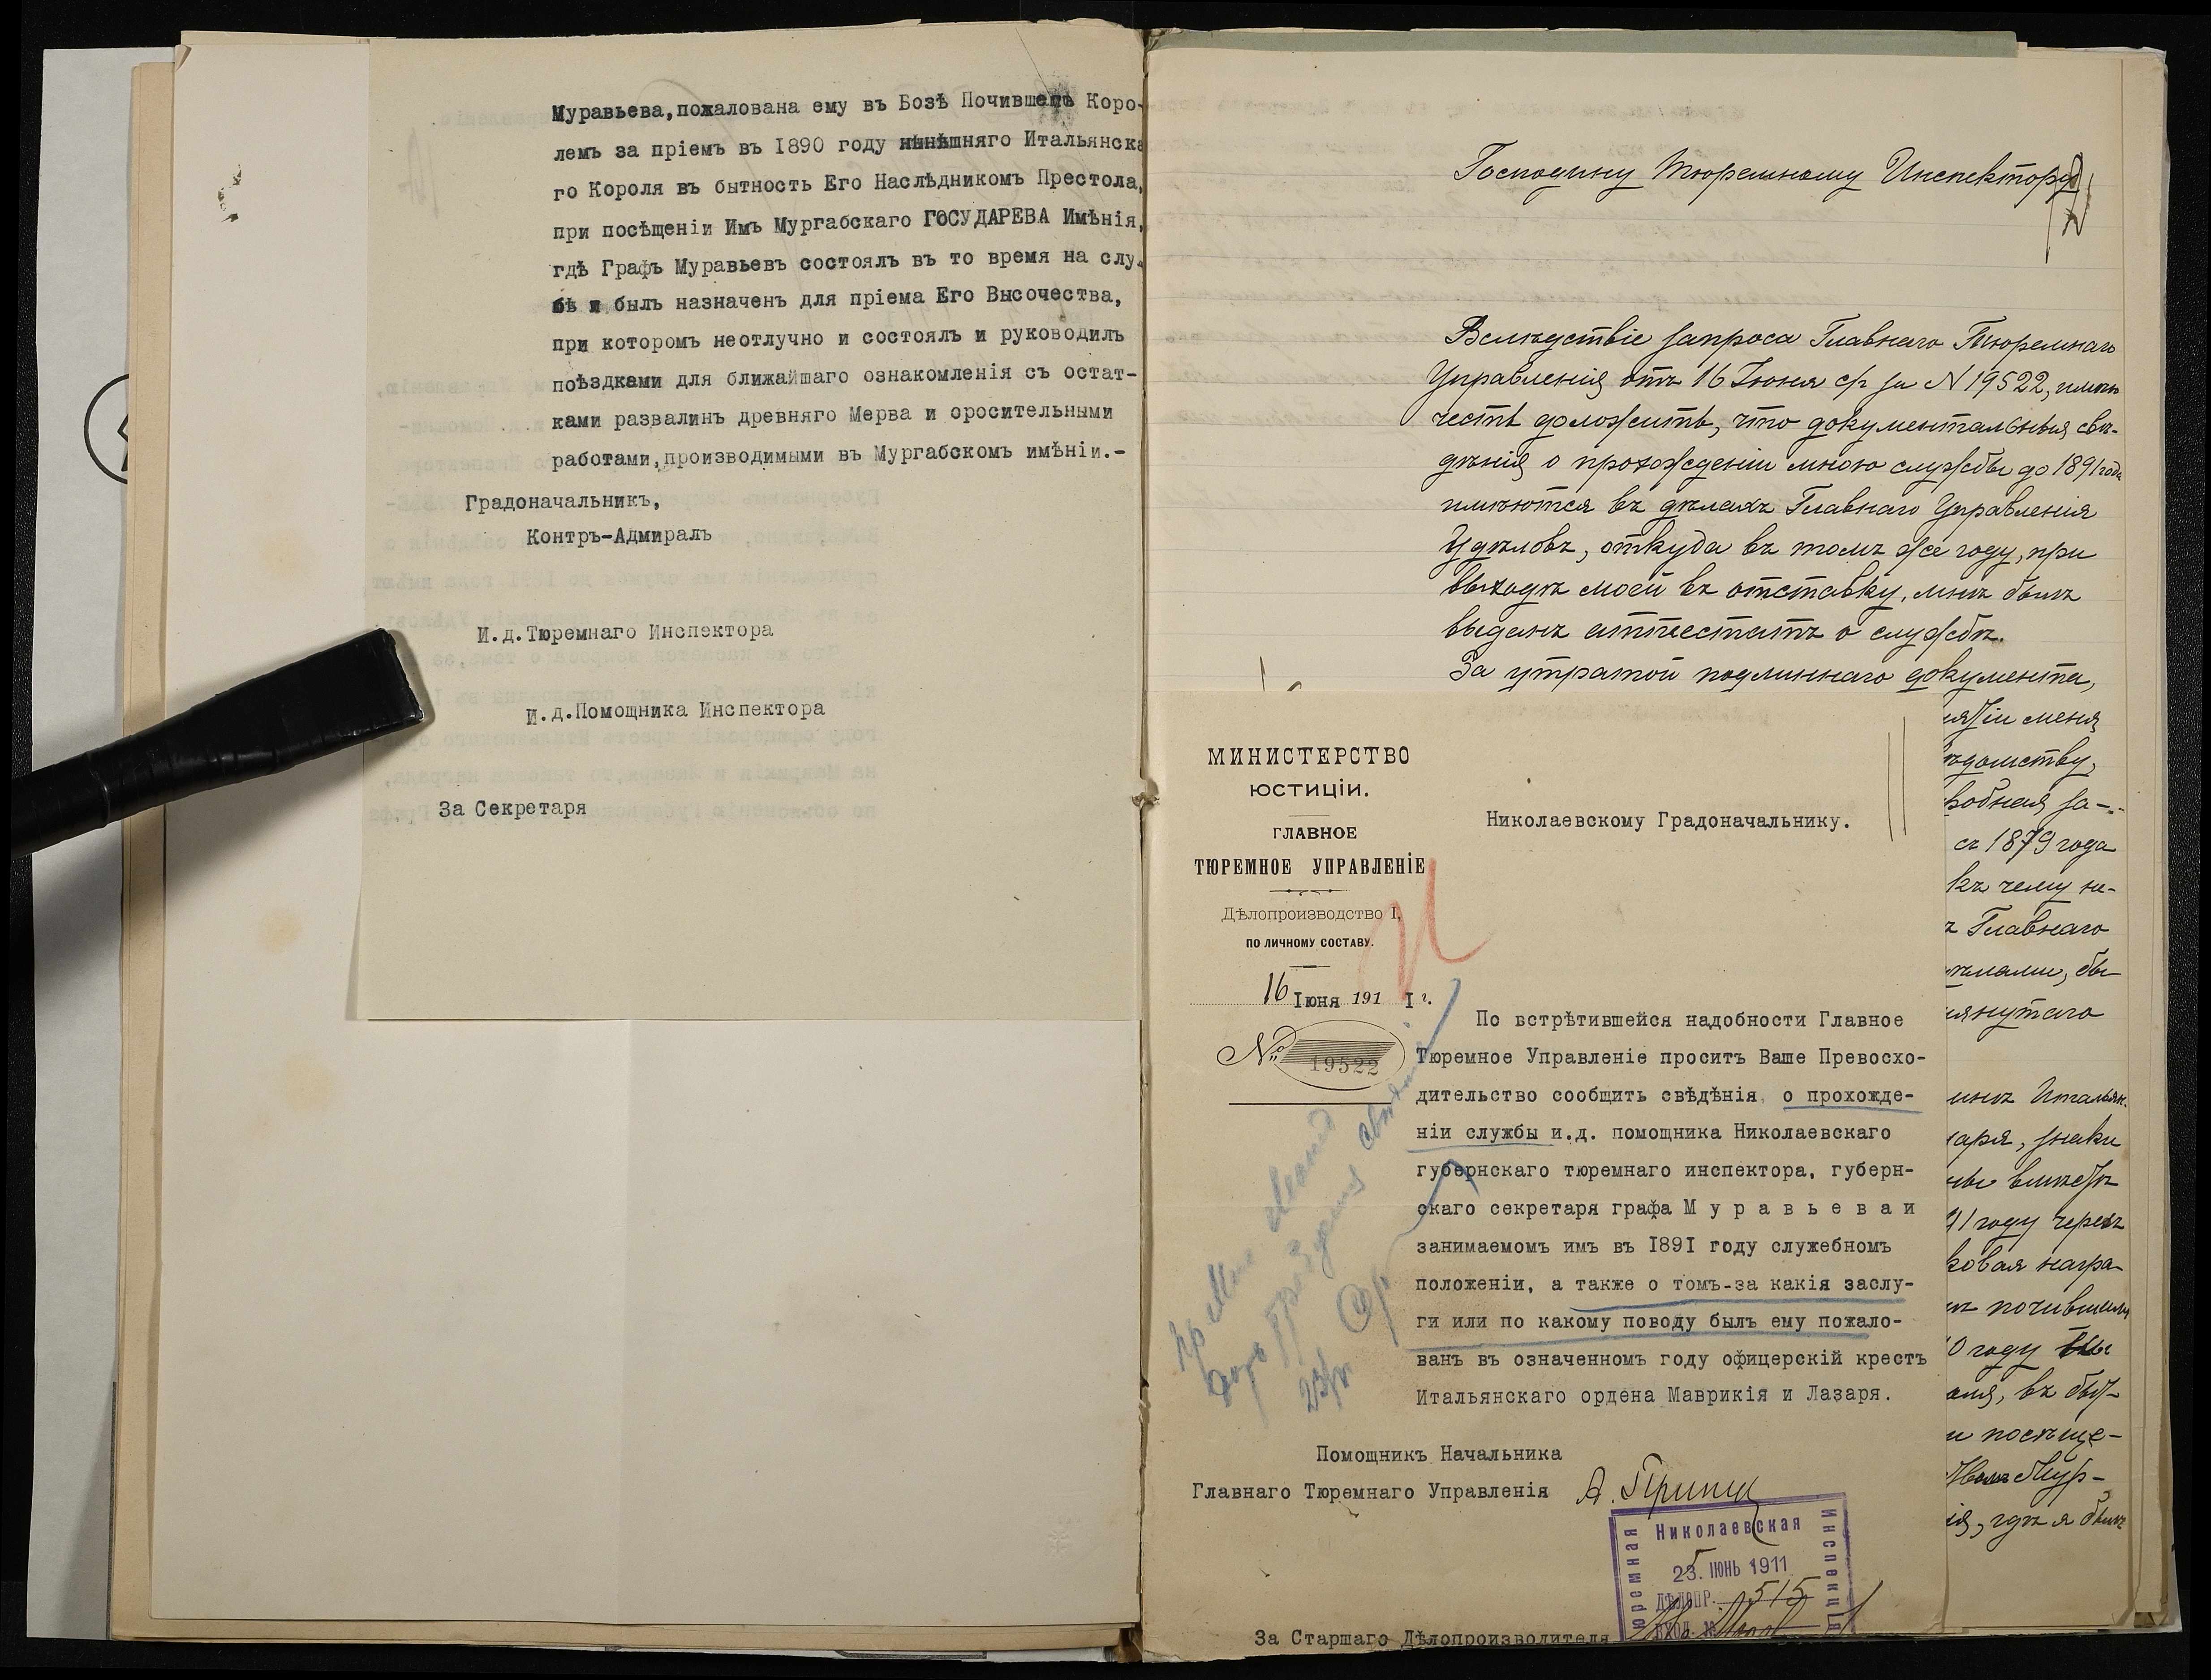 Муравьева,пожалована ему въ Бозѣ Почившемъ Коро-
лемъ за пріемъ въ 1890 году нынѣшняго Итальянска
го Короля въ бытность Его Наслѣдникомъ Престола,
при посѣщеніи Имъ Мургабскаго ГОСУДАРЕВА Имѣнія,
гдѣ Графъ Муравьевъ состоялъ въ то время на слу
бѣ и былъ назначенъ для пріема Его Высочества,
при которомъ неотлучно и состоялъ и руководилъ
поѣздками для ближайшаго ознакомленія съ остат-
ками развалинъ древняго Мерва и оросительными
работами,производимыми въ Мургабскомъ имѣніи.-
Градоначальникъ,
Контръ-Адмиралъ
И.д.Тюремнаго Инспектора
И.д.Помощника Инспектора
За Секретаря
Господину Тюремному Инспектору
Вслѣдствіе запроса Главнаго Тюремнаго
Управленія отъ 16 Іюня с/г за N 19522, имѣю
честь доложить, что документальныя свѣ-
дѣнія о прохожденіи мною службы до 1891 года
имѣются въ дѣлахъ Главнаго Управленія
Удѣловъ, откуда въ томъ же году, при
выходѣ моей въ отставку, мнѣ былъ
выданъ аттестатъ о службѣ.
За утратой подлиннаго документа,
ятіи меня
ѣдомству,
ковная за-
съ 1879 года
къ чему не-
ъ Главнаго
ѣлами, бы
янутаго
мнѣ Итальян-
аря, знаки
ны вмѣстѣ
91 году черезъ
ковая награ-
мъ почившимъ
0 году
аля, въ быт-
и посѣще-
Мур-
ія, гдѣ я былъ
МИНИСТЕРСТВО
ЮСТИЦІИ.
ГЛАВНОЕ
ТЮРЕМНОЕ УПРАВЛЕНІЕ
Дѣлопроизводство I.
ПО ЛИЧНОМУ СОСТАВУ.
16 Іюня 191 I г.
№ 19522
Николаевскому Градоначальнику.
По встрѣтившейся надобности Главное
Тюремное Управленіе проситъ Ваше Превосхо-
дительство сообщить свѣдѣнія о прохожде-
ніи службы и.д. помощника Николаевскаго
губернскаго тюремнаго инспектора, губерн-
скаго секретаря графа М у р а в ь е в а и
занимаемомъ имъ въ 1891 году служебномъ
положеніи, а также о томъ-за какія заслу-
ги или по какому поводу былъ ему пожало-
ванъ въ означенномъ году офицерскій крестъ
Итальянскаго ордена Маврикія и Лазаря.
Помощникъ Начальника
Главнаго Тюремнаго Управленія
Николаевская
Тюремная
Инспекція
23. ІЮНЬ 1911
ДѢЛОПР. 515
ВХОД. №
За Старшаго Дѣлопроизводителя